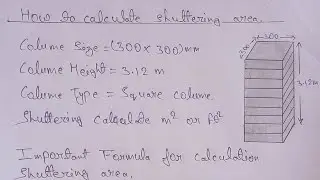 How to calculate shuttering area.
Column Size = (300 x 300) mm
Column Height = 3.12 m
Column Type = Square column
Shuttering calculate m² or ft²
Important Formula for calculation
shuttering area.
300
300
3.12m